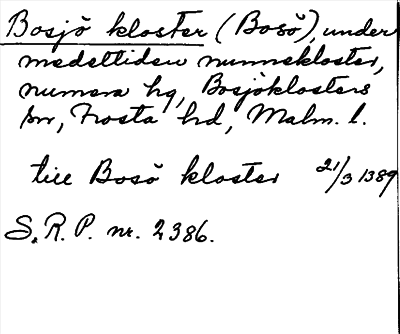 Bosjö kloster (Bosö), under
medeltiden nunnekloster,
numera hg, Bosjöklosters
sn, Frosta hd, Malm. l.
till Bosö kloster 21/3 1389
S.R.P. nr. 2386.